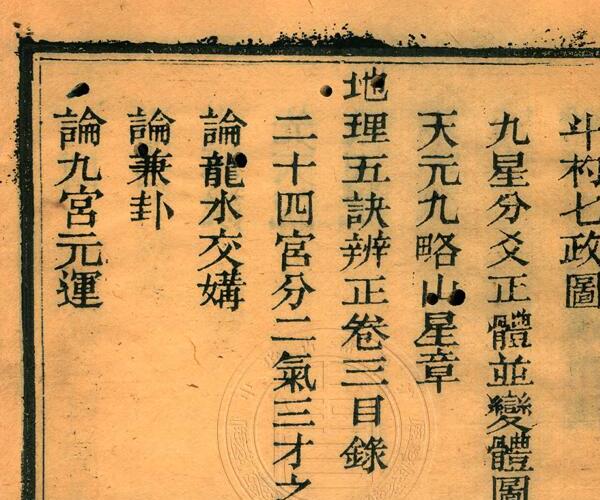 斗杓七政圖
九星分爻正體並變體圖
天元九略山星章
地理五訣辨正卷三目錄
二十四宮分二氣三才之
論龍水交媾
論兼卦
論九宮元運